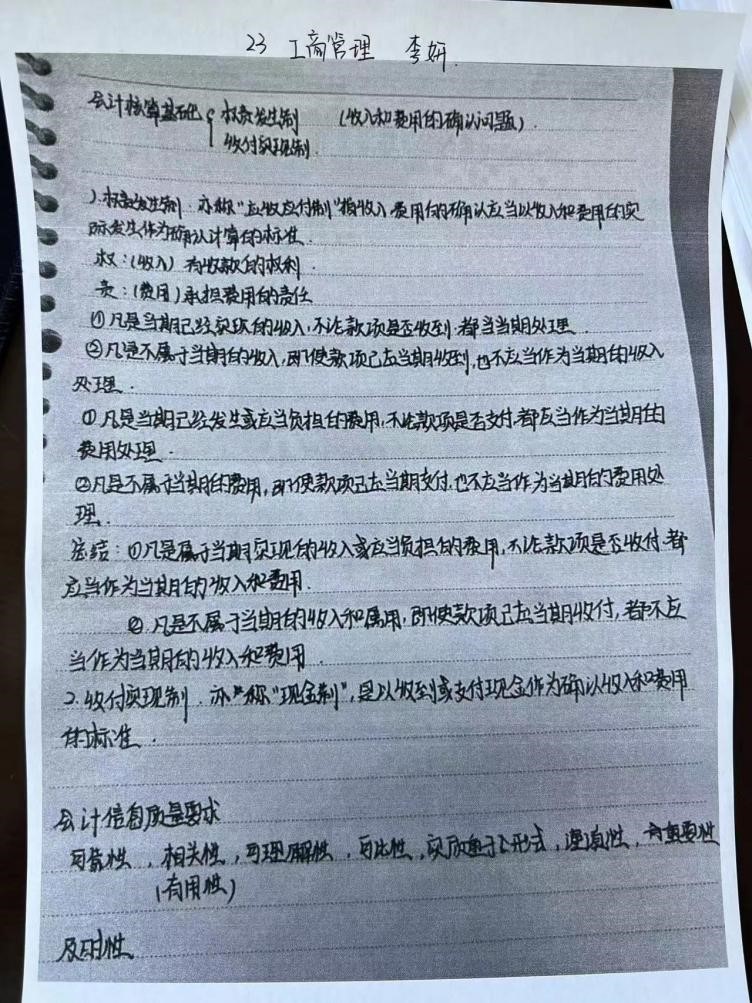 23 工商管理 李妍
会计核算基础{权责发生制 (收入和费用的确认问题).
收付实现制.
1.权责发生制.亦称"应收应付制"指收入费用的确认应当以收入和费用的实
际发生作为确认计算的标准.
权:(收入) 有收款的权利.
责:(费用)承担费用的责任
①凡是当期已经实现的收入,不论款项是否收到.都当当期处理.
②凡是不属于当期的收入,即使款项已在当期收到,也不应当作为当期的收入
处理.
①凡是当期已经发生或应当负担的费用,不论款项是否支付.都应当作为当期的
费用处理.
②凡是不属于当期的费用,即使款项已在当期支付.也不应当作为当期的费用处
理.
总结:①凡是属于当期实现的收入或应当负担的费用,不论款项是否收付.都
应当作为当期的收入和费用.
②.凡是不属于当期的收入和属用,即使款项已在当期收付,都不应
当作为当期的收入和费用.
2.收付实现制.亦称"现金制",是以收到或支付现金作为确认收入和费用
的标准.
会计信息质量要求
可靠性,相关性,可理解性,可比性,实质重于形式,谨慎性,重要性
(有用性)
及时性